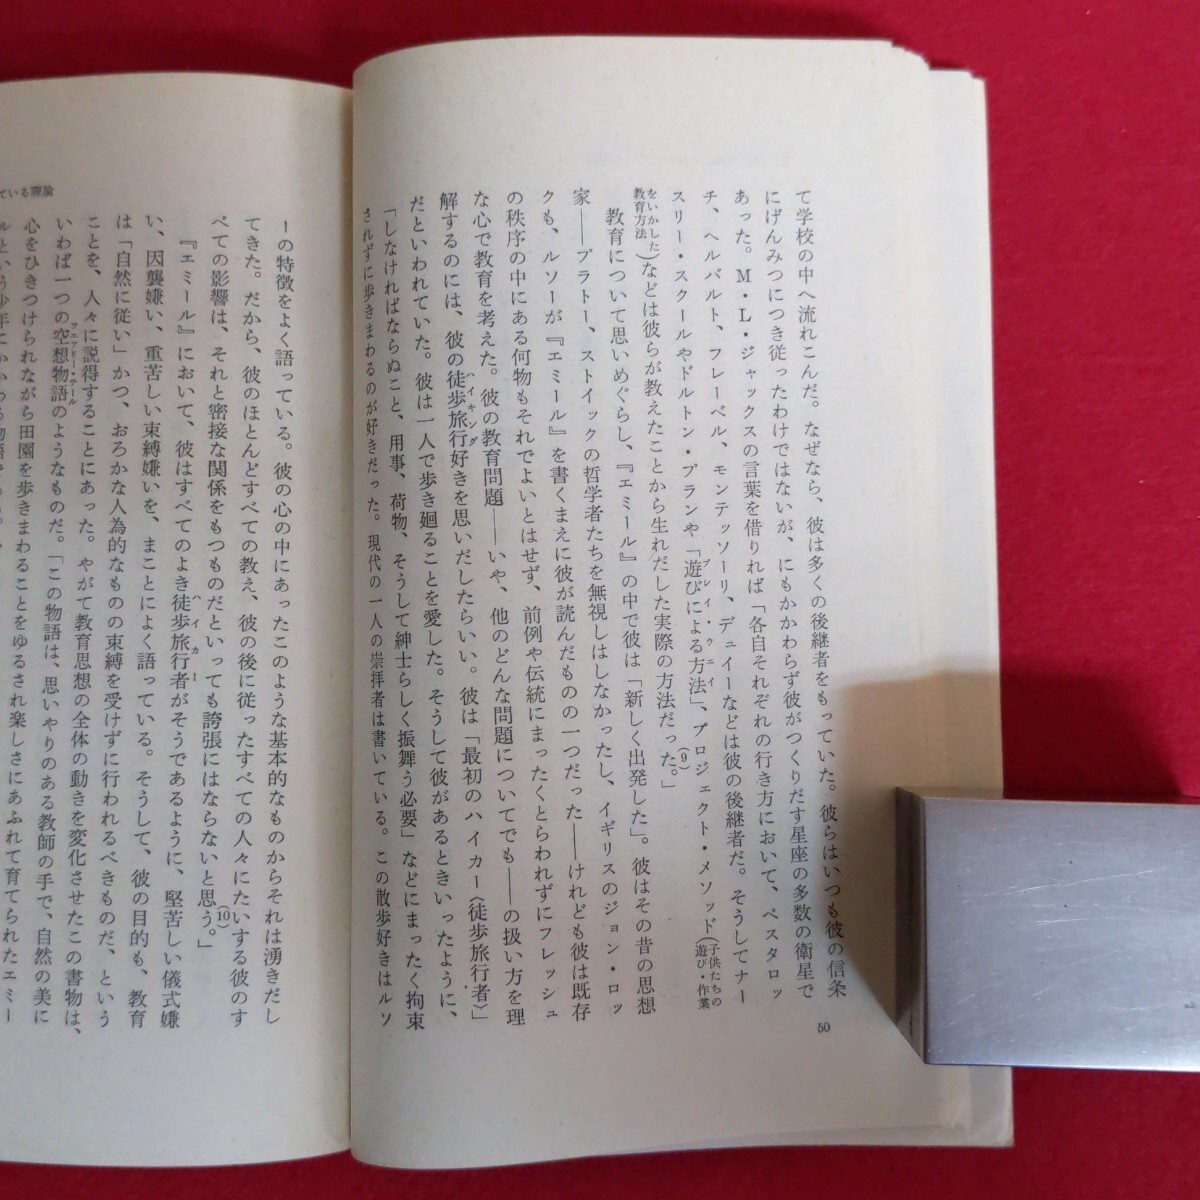 て学校の中へ流れこんだ。なぜなら、彼は多くの後継者をもっていた。彼らはいつも彼の信条
にげんみつにつき従ったわけではないが、にもかかわらず彼がつくりだす星座の多数の衛星で
あった。M・L・ジャックスの言葉を借りれば「各自それぞれの行き方において、ペスタロッ
チ、ヘルバルト、フレーベル、モンテッソーリ、デューイーなどは彼の後継者だ。そうしてナー
スリー・スクールやドルトン・プランや「遊びによる方法」、プロジェクト・メソッド(子供たちの遊び・作業
プレイ・ウェイ
をいかした教育方法)などは彼らが教えたことから生れだした実際の方法だった。」(9)
教育について思いめぐらし、『エミール』の中で彼は「新しく出発した」。彼はその昔の思想
家――プラトー、ストイックの哲学者たちを無視しはしなかったし、イギリスのジョン・ロッ
クも、ルソーが『エミール』を書くまえに彼が読んだものの一つだった――けれども彼は既存
の秩序の中にある何物もそれでよいとはせず、前例や伝統にまったくとらわれずにフレッシュ
な心で教育を考えた。彼の教育問題――いや、他のどんな問題についてでも――の扱い方を理
解するのには、彼の徒歩旅行好きを思いだしたらいい。彼は「最初のハイカー〈徒歩旅行者〉」
ハイキング
だといわれていた。彼は一人で歩き廻ることを愛した。そうして彼があるときいったように、
「しなければならぬこと、用事、荷物、そうして紳士らしく振舞う必要」などにまったく拘束
されずに歩きまわるのが好きだった。現代の一人の崇拝者は書いている。この散歩好きはルソ
50
ている理論
ーの特徴をよく語っている。彼の心の中にあったこのような基本的なものからそれは湧きだし
てきた。だから、彼のほとんどすべての教え、彼の後に従ったすべての人々にたいする彼のす
べての影響は、それと密接な関係をもつものだといっても誇張にはならないと思う。」(10)
『エミール』において、彼はすべてのよき徒歩旅行者がそうであるように、堅苦しい儀式嫌
ハイカー
い、因襲嫌い、重苦しい束縛嫌いを、まことによく語っている。そうして、彼の目的も、教育
は「自然に従い」かつ、おろかな人為的なものの束縛を受けずに行われるべきものだ、という
ことを、人々に説得することにあった。やがて教育思想の全体の動きを変化させたこの書物は、
いわば一つの空想物語のようなものだ。「この物語は、思いやりのある教師の手で、自然の美に
フェアリー・テール
心をひきつけられながら田園を歩きまわることをゆるされ楽しさにあふれて育てられたエミー